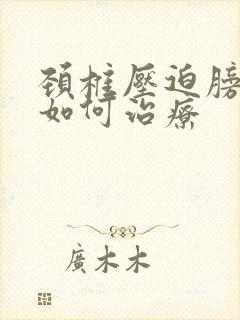 頚椎壓迫膀
如何治療
廣木木